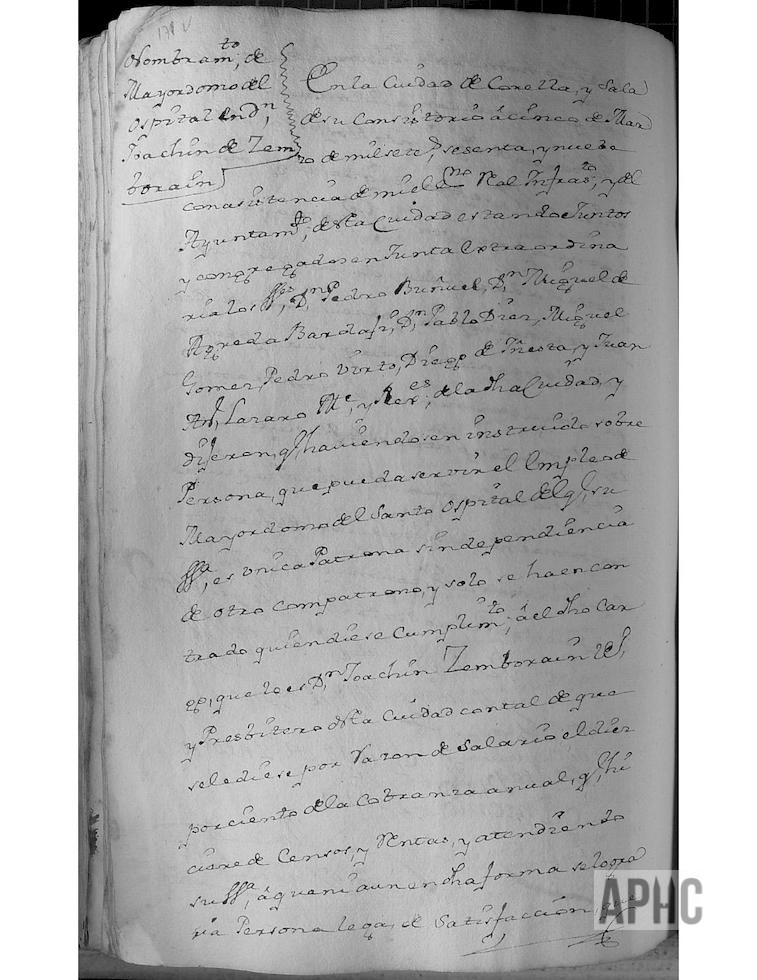 178 v
Nombramto, de
Mayordomo del
Ospital en Dn,
Joachin de Zem
borain
En la Ciudad de Corella, y Sala
de su Consistorio a cinco de Mar
zo de mil setes, sesenta, y nueve
con asistencia de mi el Esno Real Infrasto, y del
Ayuntamto, dsta Ciudad estando Juntos
y congregados en Junta Extraordina
ria los SSes, Dn Pedro Buñuel, Dn Miguel de
Agreda Bardaji, Dn Pablo Diez, Miguel
Gomez, Pedro Virto, Diego de Yñesta, y Juan
Anto, Lazaro Alce, y Rexes, de la dha Ciudad, y
dijeron, q, haviendose instruido sobre
Persona, que pueda servir el Empleo de
Mayordomo del Santo Ospital del q, su
SSa, es vnica Patrona sin dependiencia
de otro compatrono, y solo se ha encon
trado quien diese Cumplimto, a el dho Car
go, que lo es Dn Joachin Zemborain
y Presbitero dsta Ciudad con tal de que
se le diese por Razon de Salario el diez
por ciento de la Cobranza anual, q, hi
ciere de Censos, y Rentas, y atendiendo
su SSa, a que ni aun en dha forma se logra
ria Persona lega, de Satisfaccion, que
APHC